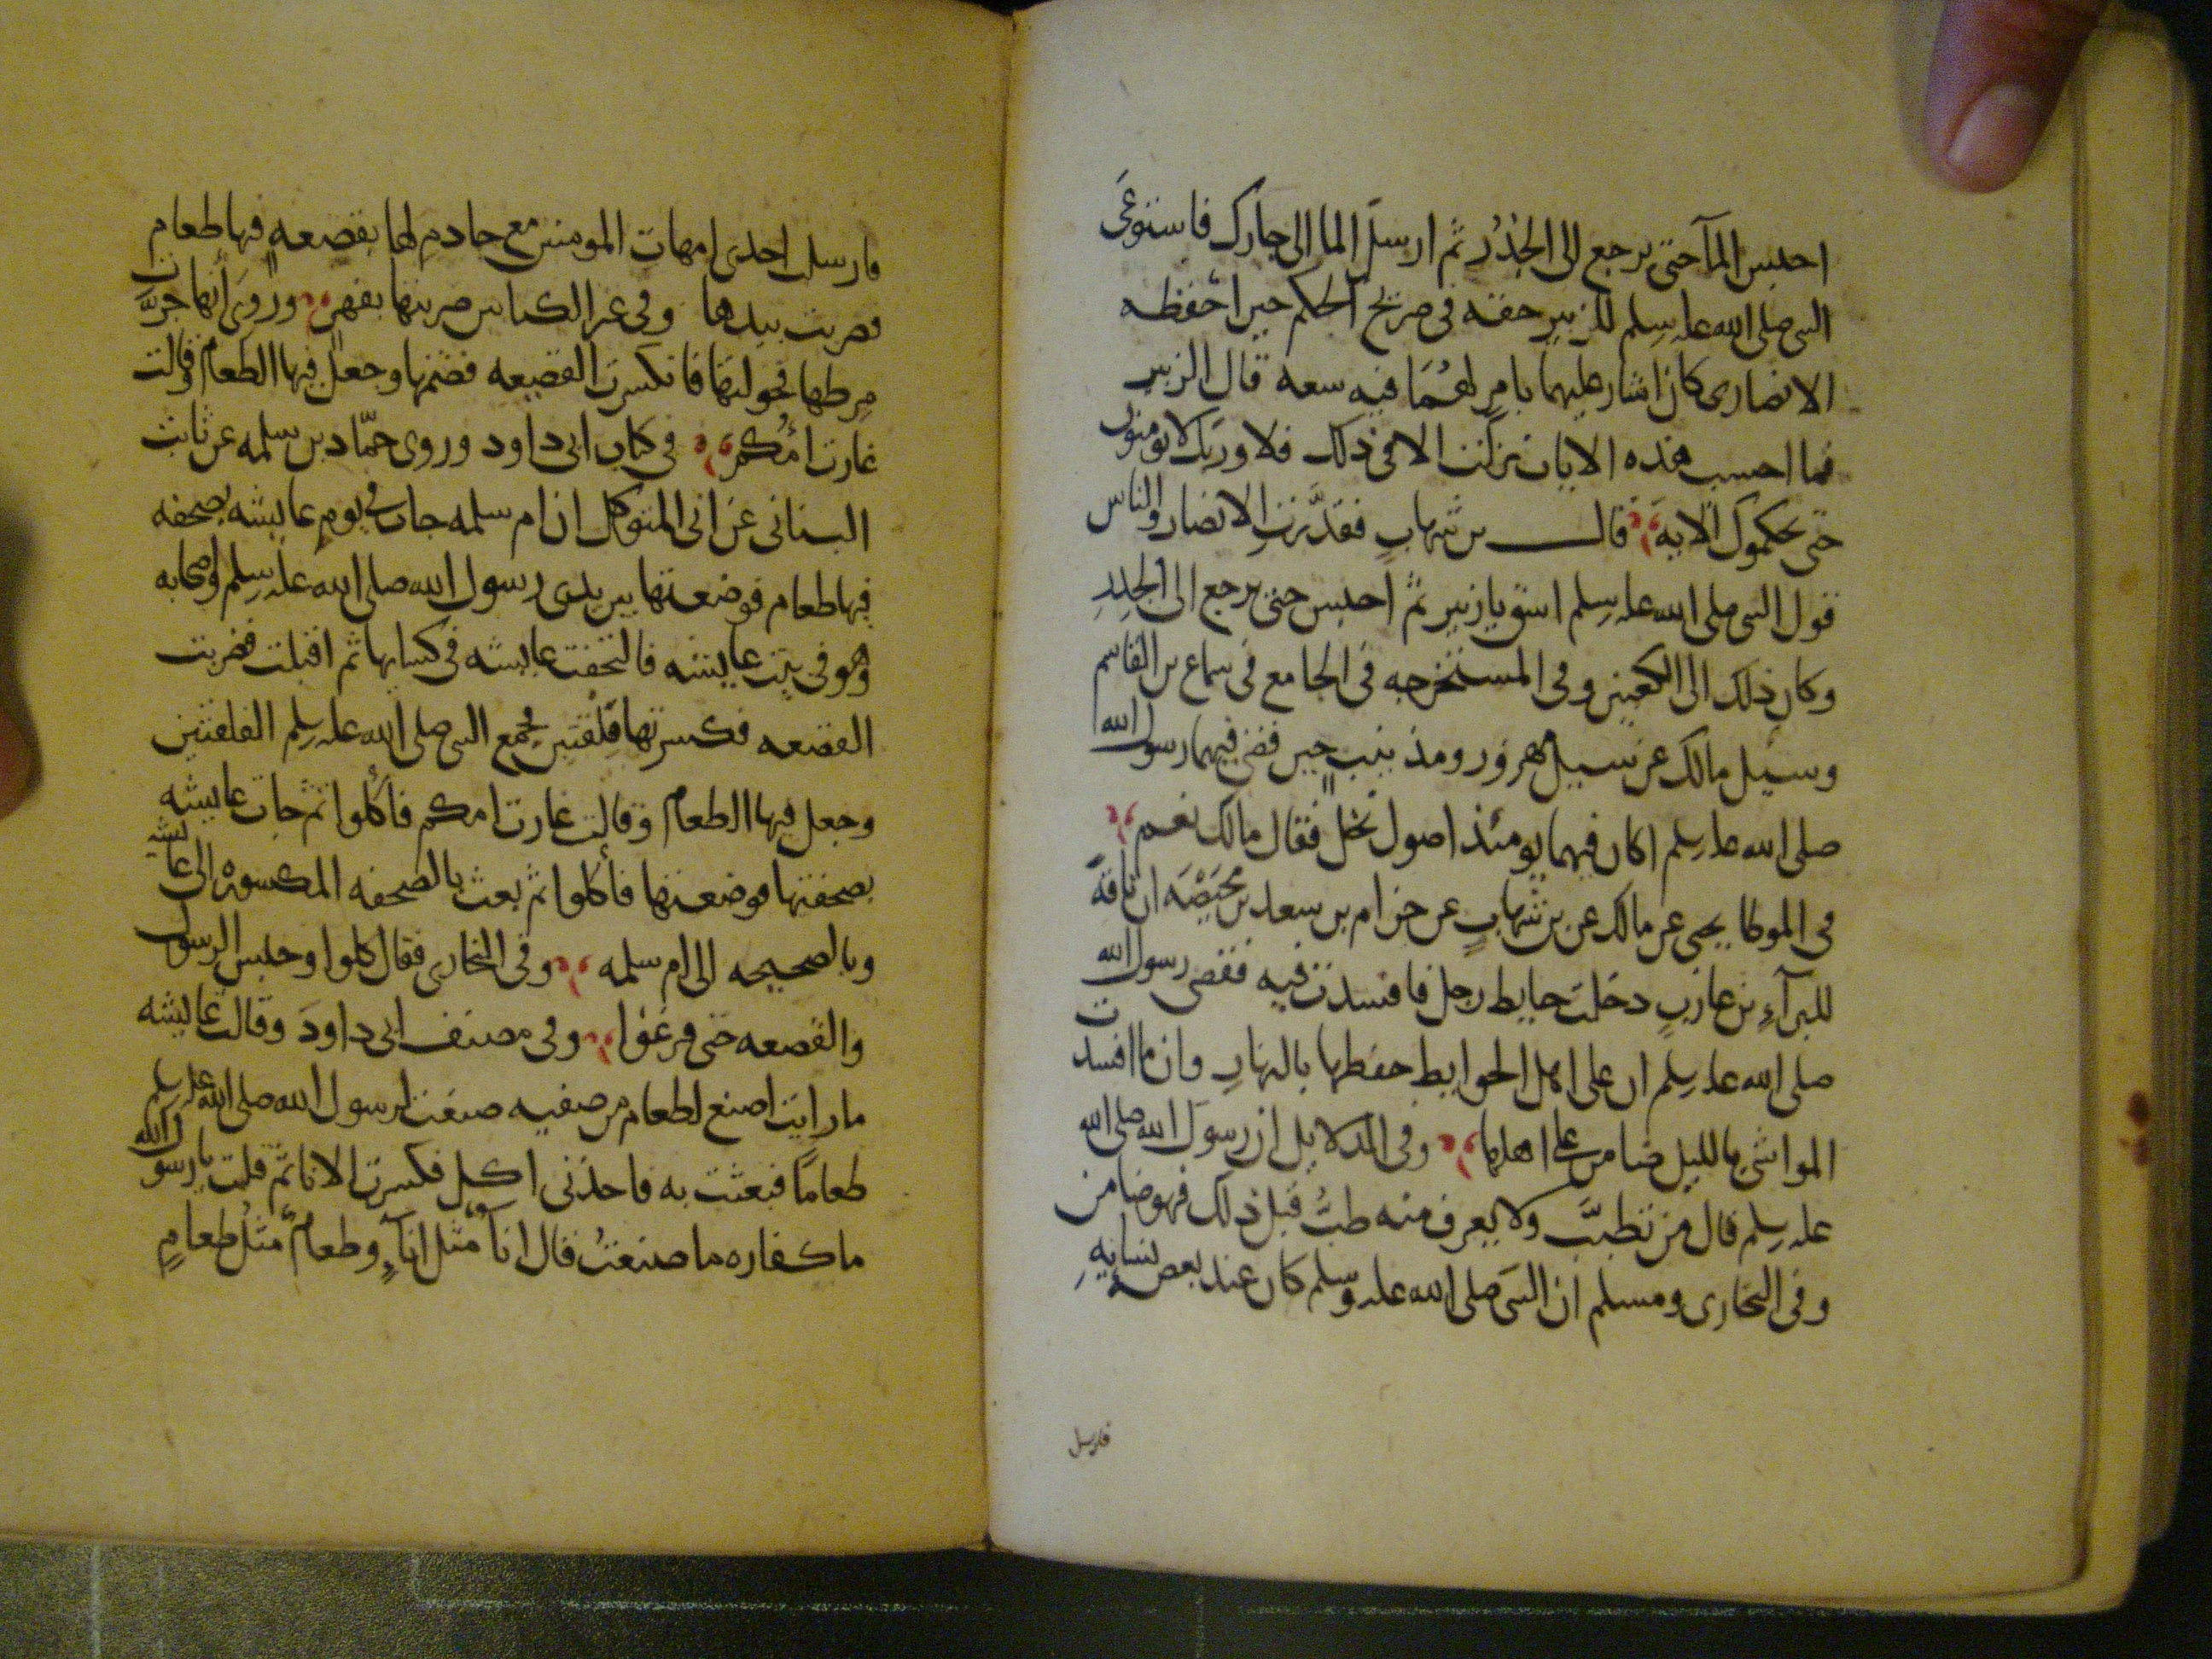 احبس المآ حتى يرجع الى الجُدُر ثم ارسل الما الى جارك فاستوعَى
النبى صلى الله عله وسلم للزبير حقه فى صريح الحكم حين احفظه
الانصارى كان اشار عليهما بامرٍ لهُمَا فيه سعه قال الزبير
فما احسب هذه الايات نزلت الا فى ذلك فلا وربك لا يومنون
حتى يحكموك الايه قال بن شهابٍ فقدَّرت الانصار والناس
قول النبى صلى الله عله وسلم اسق يا زبير ثم احبس حتى يرجع الى الجدر
وكان ذلك الى الكعبين وفى المستخرجه فى الجامع فى سماع بن القاسم
وسيل مالك عن سيل مهزور ومذينب حين قضى فيهما رسول الله
صلى الله عله وسلم اكان فيهما يومئذ اصول نخل فقال مالك نعم
فى الموطا يحيى عن مالك عن بن شهابٍ عن حزام بن سعد بن مُحَيِّصَه ان ناقةً
للبرآءِ بن عازبٍ دخلت حايط رجل فافسدت فيه فقضى رسول الله
صلى الله عله وسلم ان على اهل الحوايط حفظها بالنهارِ وان ما افسدت
المواشى بالليل ضامن على اهلها وفى الدلايل ان رسول الله صلى الله
عله وسلم قال من تطبَّبَ ولا يعرف منه طبٌّ قبل ذلك فهو ضامن
وفى البخارى ومسلم ان النبى صلى الله عله وسلم كان عند بعض نسايهِ
فارسل
فارسلت احدى امهات المومنين مع خادم لها بقصعه فيها طعام
فضربت بيدها وفى غير الكتابين ضربتها بفهرٍ وروى أنها جرَّت
مرطها فحولتها فانكسرت القصعه فضمها وجعل فيها الطعام وقالت
غارت امُكم فى كتاب ابى داود وروى حمّاد بن سلمه عن ثابت
البنانى عن ابى المتوكل ان ام سلمه جات فى يوم عايشه بصحفه
فيها طعام فوضعتها بين يدى رسول الله صلى الله عله وسلم واصحابه
وهو فى بيت عايشه فالتحفت عايشه فى كسايها ثم اقبلت فضربت
القصعه فكسرتها فلقتين فجمع النبى صلى الله عله وسلم الفلقتين
وجعل فيها الطعام وقالت غارت امكم فاكلوا ثم جات عايشه
بصحفتها فوضعتها فأكلوا ثم بعث بالصحفه المكسوره الى عايشه
وبالصحيحه الى ام سلمه وفى البخارى فقال كلوا وحبس الرسول
والقصعه حتى فرغوا وفى مصنف ابى داودَ وقالت عايشه
ما رايت اصنع لطعام من صفيه صنعت لرسول الله صلى الله عله وسلم
طعامًا فبعثت به فاخذنى افكل فكسرت الانا ثم قلت يا رسول الله
ما كفاره ما صنعتُ قال انآ مثل انآءٍ وطعام مثل طعامٍ